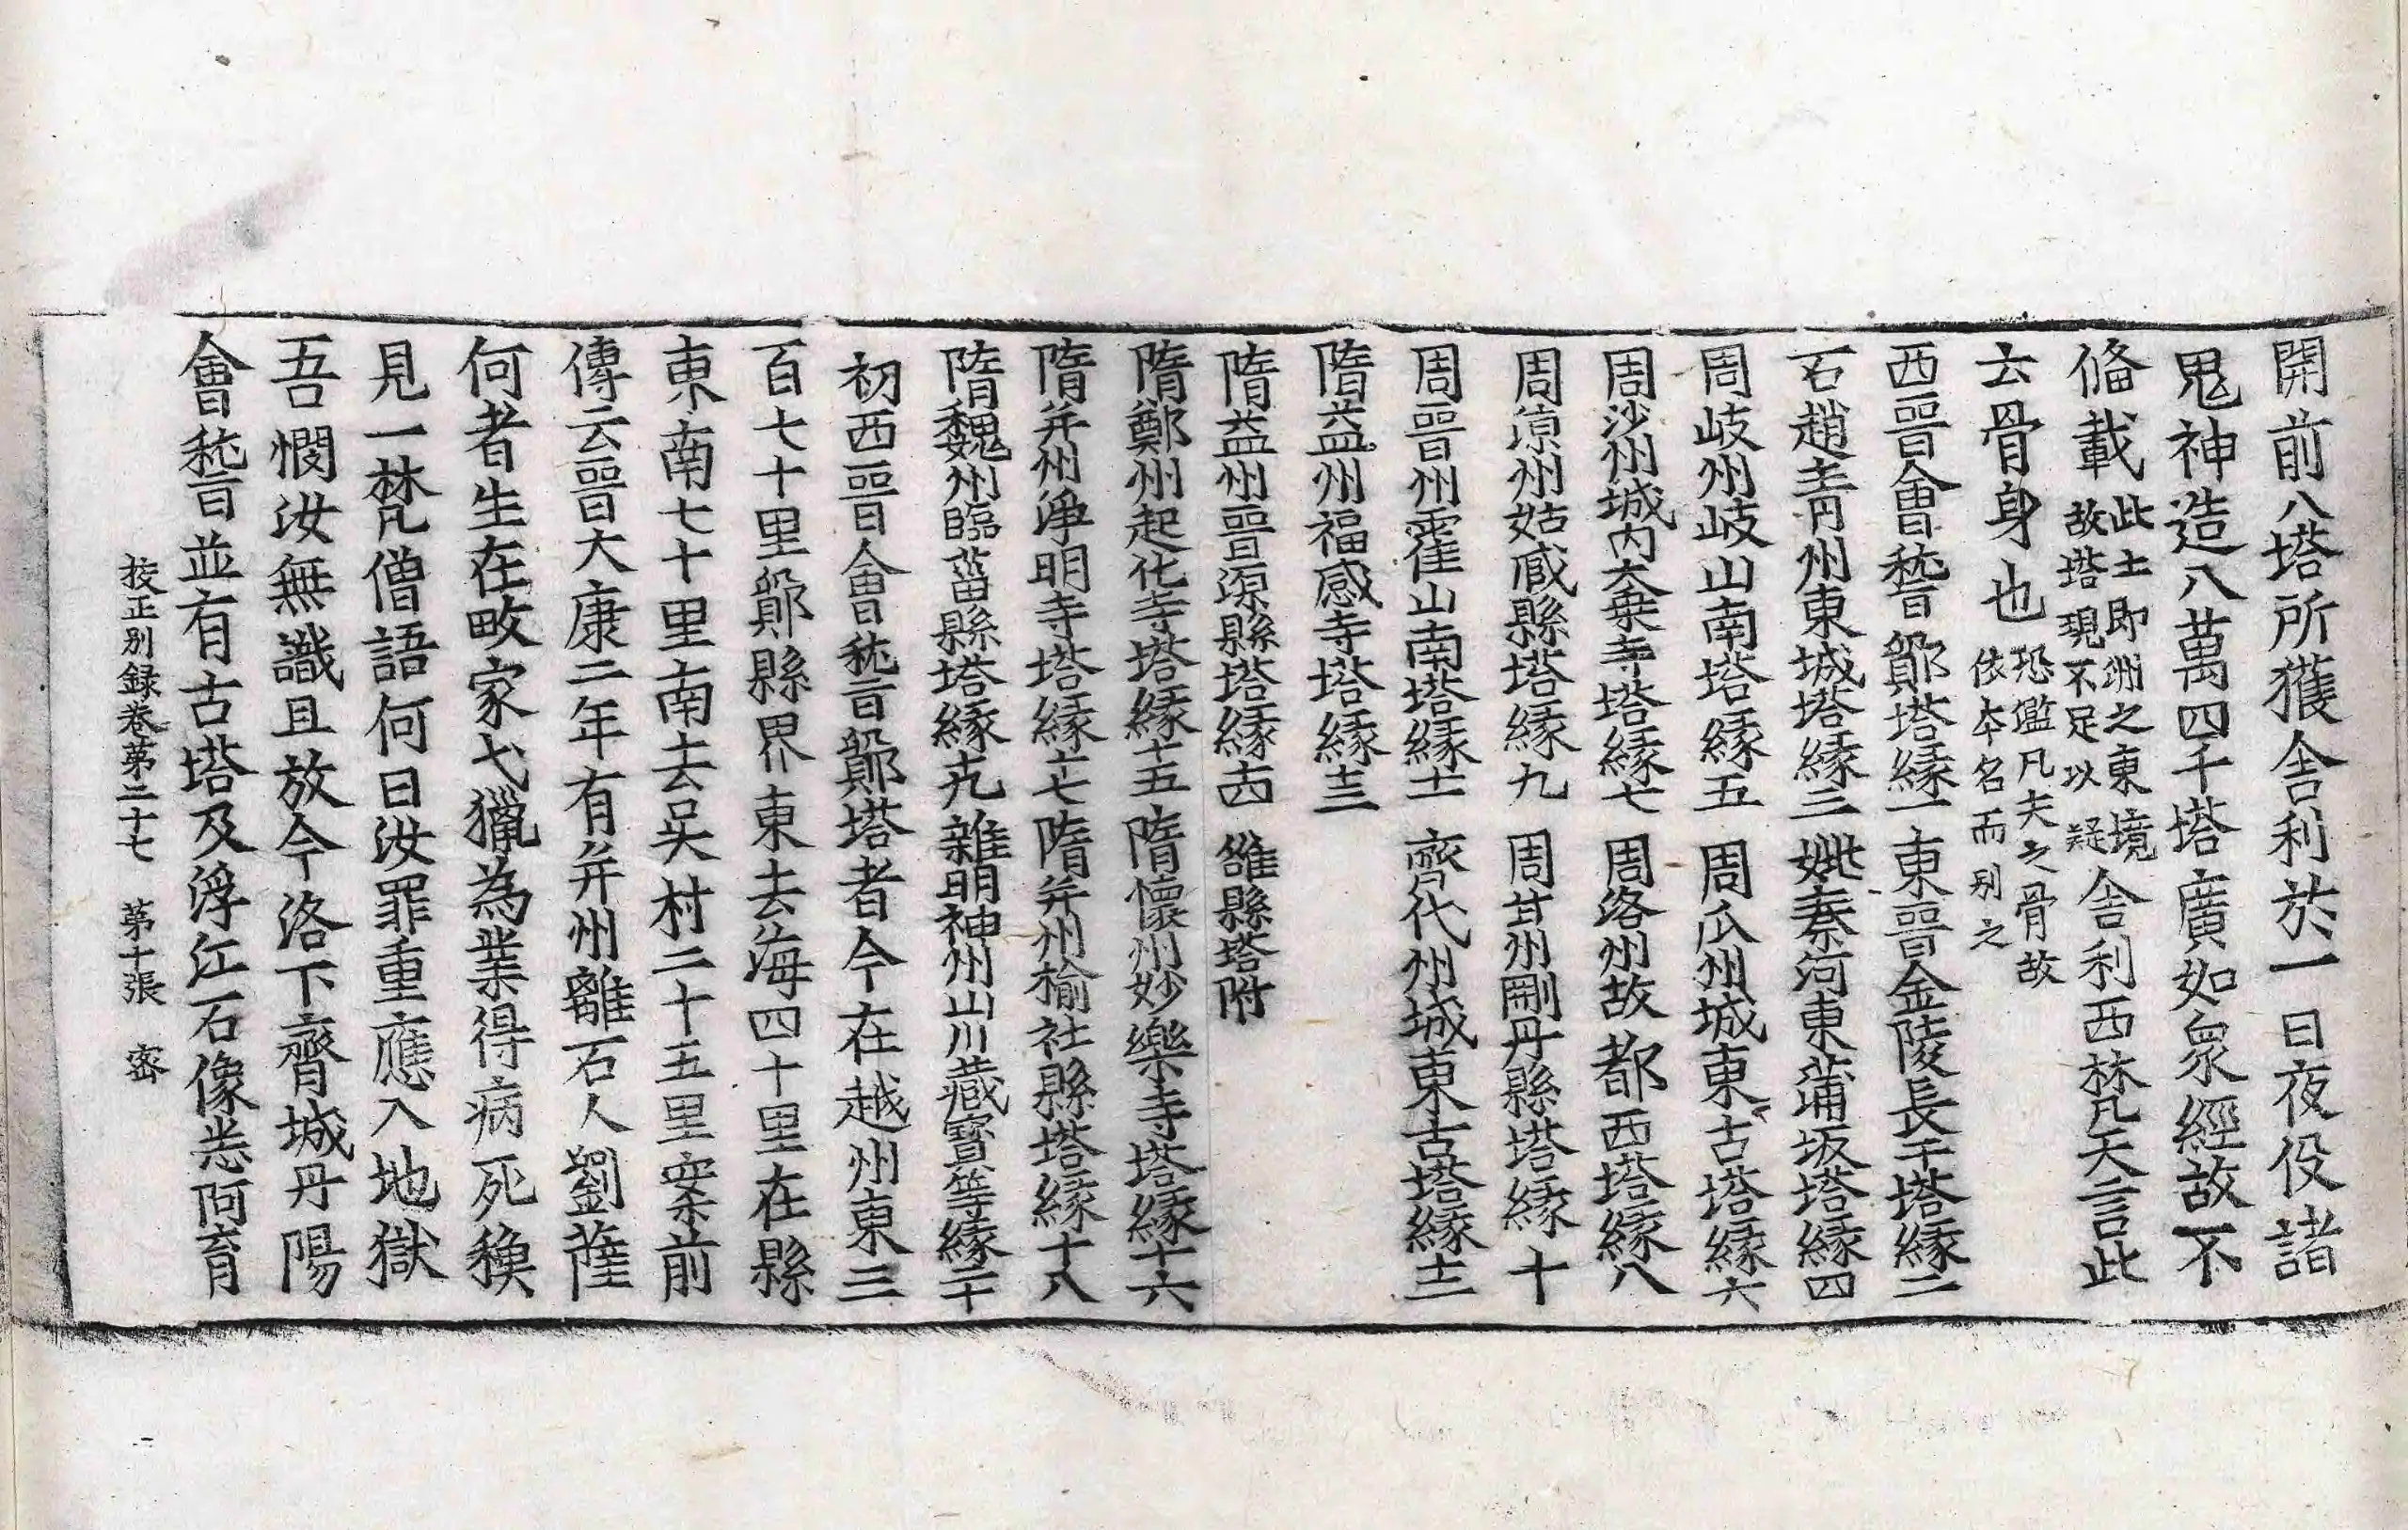 開前八塔所獲舎利於一日夜役諸
鬼神造八萬四千塔廣如衆經故不
俻載此土即洲之東境故塔現不足以疑舎利西梵天言此
云骨身也恐濫凡夫之骨故依本名而别之
西晉會嵇晉鄮塔緣一東晉金陵長干塔緣二
石趙青州東城塔緣三 姚秦河東蒲坂塔緣四
周岐州岐山南塔緣五 周瓜州城東古塔緣六
周沙州城内大乗寺塔緣七 周洛州故都西塔緣八
周涼州姑臧縣塔緣九 周甘州刪丹縣塔緣十
周晉州霍山南塔緣十一 齊代州城東古塔緣十二
隋益州福感寺塔緣十三
隋益州晉源縣塔緣十四 雒縣塔附
隋鄭州起化寺塔緣十五 隋懷州妙樂寺塔緣十六
隋并州淨明寺塔緣十七 隋并州榆社縣塔緣十八
隋魏州臨菑縣塔緣十九 雜明神州山川藏寶等緣二十
初西晉會嵇鄮塔者今在越州東三
百七十里鄮縣界東去海四十里在縣
東南七十里南去吴村二十五里案前
傳云晉大康二年有并州離石人劉薩
何者生在畋家弋獵為業得病死穌
見一梵僧語何曰汝罪重應入地獄
吾憫汝無識且放今洛下齊城丹陽
會嵇並有古塔及浮江石像悉阿育
按正别録卷第二十七 第十張 宻